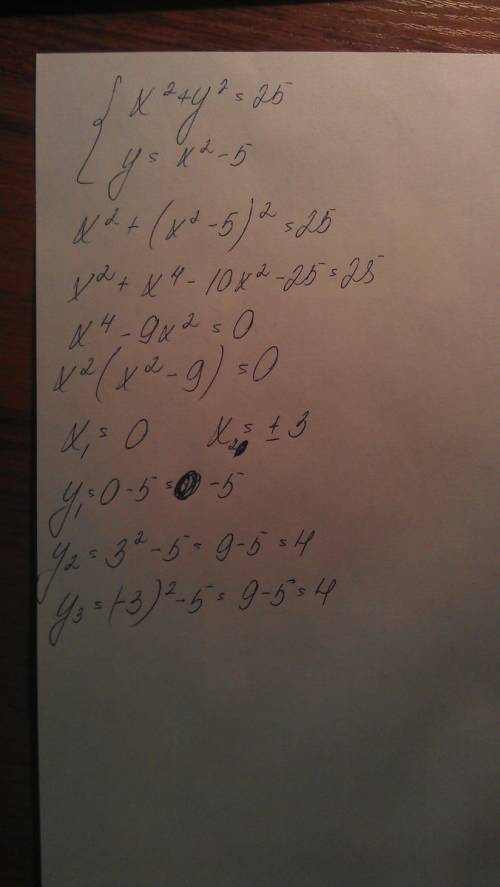 { x² + y² = 25
y = x² - 5
x² + (x² - 5)² = 25
x² + x⁴ - 10x² - 25 = 25
x⁴ - 9x² = 0
x² (x² - 9) = 0
x₁ = 0 x₂ = ± 3
y₁ = 0 - 5 = -5
y₂ = 3² - 5 = 9 - 5 = 4
y₃ = (-3)² - 5 = 9 - 5 = 4